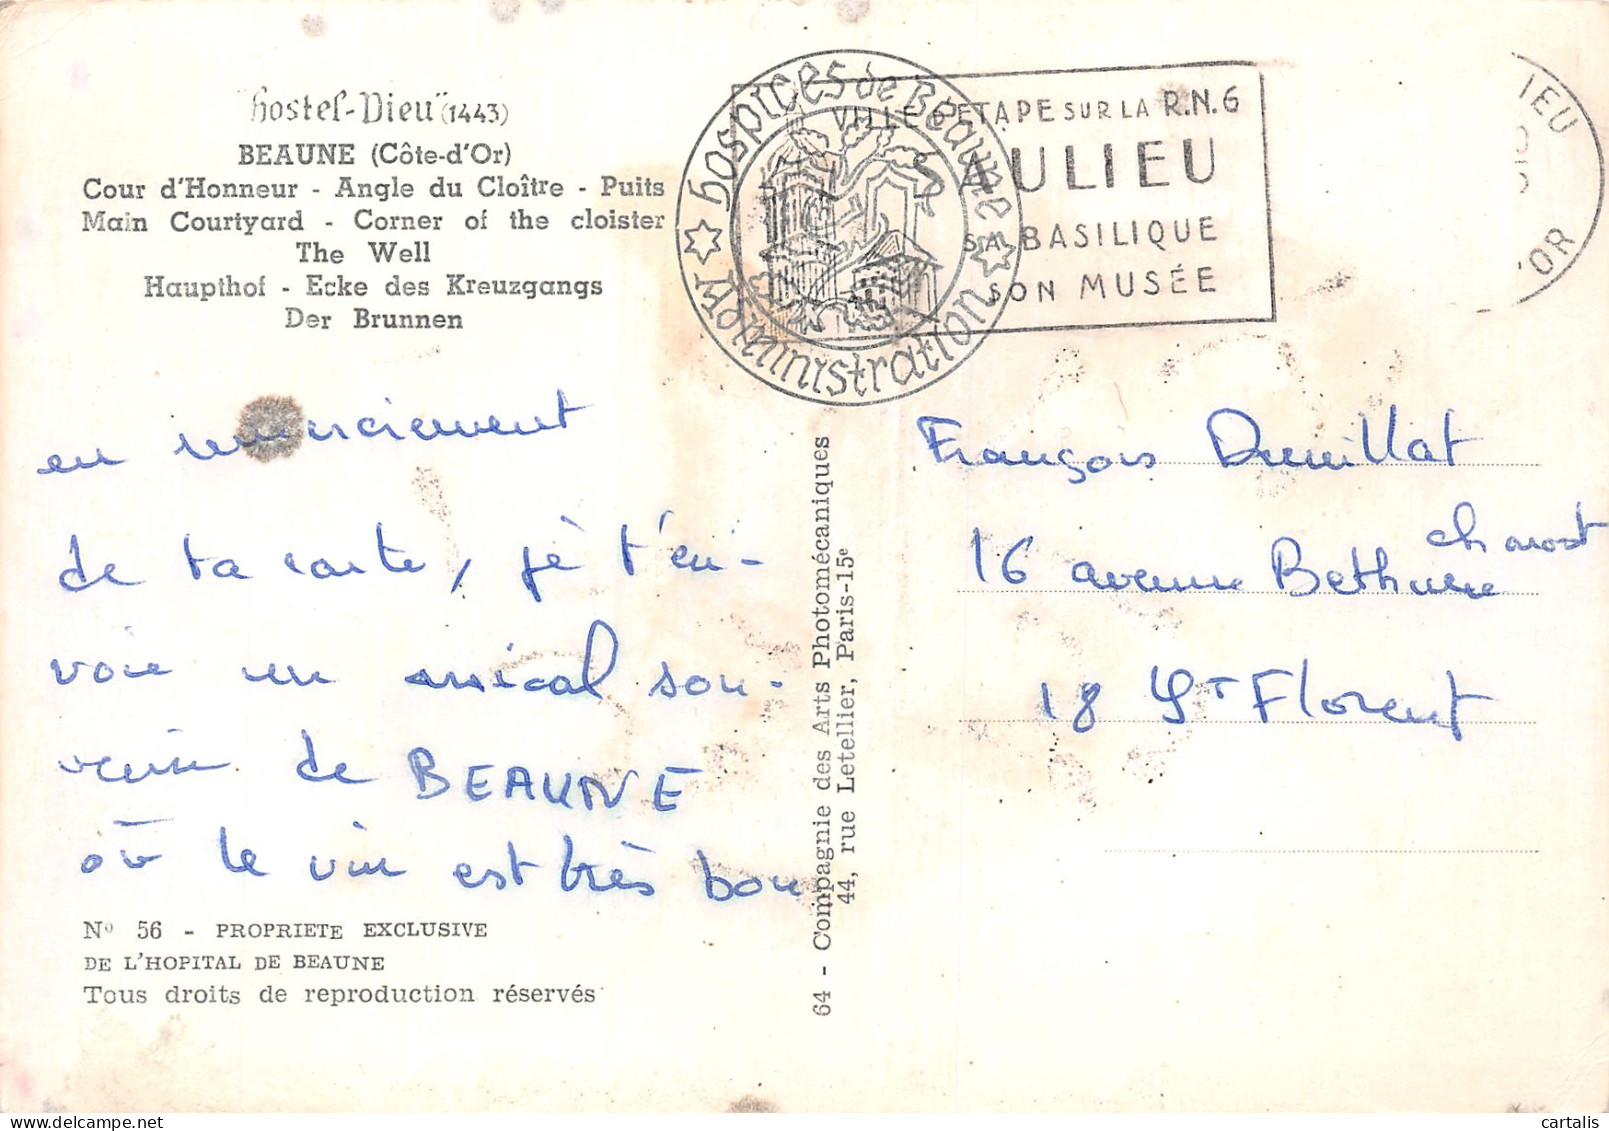 "Hostel-Dieu" (1443)
BEAUNE (Côte-d'Or)
Cour d'Honneur - Angle du Cloître - Puits
Main Courtyard - Corner of the cloister
The Well
Haupthof - Ecke des Kreuzgangs
Der Brunnen
en remerciement
de ta carte, je t'en-
voie un amical sou-
venir de BEAUNE
où le vin est très bon
No 56 - PROPRIETE EXCLUSIVE
DE L'HOPITAL DE BEAUNE
Tous droits de reproduction réservés
64 - Compagnie des Arts Photomécaniques
44, rue Letellier, Paris-15e
Hospices de Beaune
Administration
VILLE D'ETAPE SUR LA R.N.6
AULIEU
SA BASILIQUE
SON MUSÉE
IEU
'OR
François
charost
16 avenue Bethune
18 St Florent
cartalis